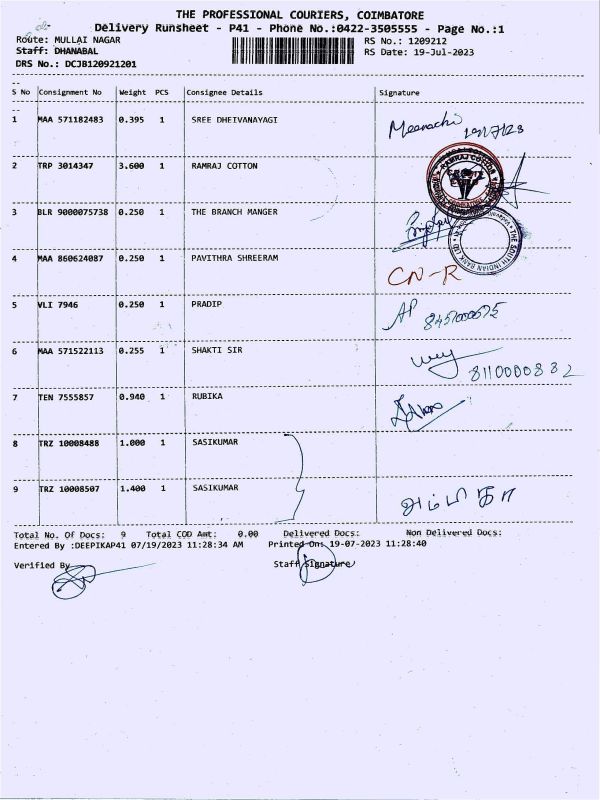 THE PROFESSIONAL COURIERS, COIMBATORE
Delivery Runsheet - P41 - Phone No.:0422-3505555 - Page No.:1
Route: MULLAI NAGAR RS No.: 1209212
Staff: DHANABAL RS Date: 19-Jul-2023
DRS No.: DCJB120921201
S No Consignment No Weight PCS Consignee Details Signature
1 MAA 571182483 0.395 1 SREE DHEIVANAYAGI Meenachi 19/7/23
2 TRP 3014347 3.600 1 RAMRAJ COTTON
RAMRAJ COTTON
3 BLR 9000075738 0.250 1 THE BRANCH MANGER
THE SOUTH INDIAN BANK LTD.
4 MAA 860624087 0.250 1 PAVITHRA SHREERAM CN-R
5 VLI 7946 0.250 1 PRADIP AP
6 MAA 571522113 0.255 1 SHAKTI SIR
8110000832
7 TEN 7555857 0.940 1 RUBIKA
8 TRZ 10008488 1.000 1 SASIKUMAR
9 TRZ 10008507 1.400 1 SASIKUMAR
Total No. Of Docs: 9 Total COD Amt: 0.00 Delivered Docs: Non Delivered Docs:
Entered By :DEEPIKAP41 07/19/2023 11:28:34 AM Printed On: 19-07-2023 11:28:40
Verified By Staff Signature